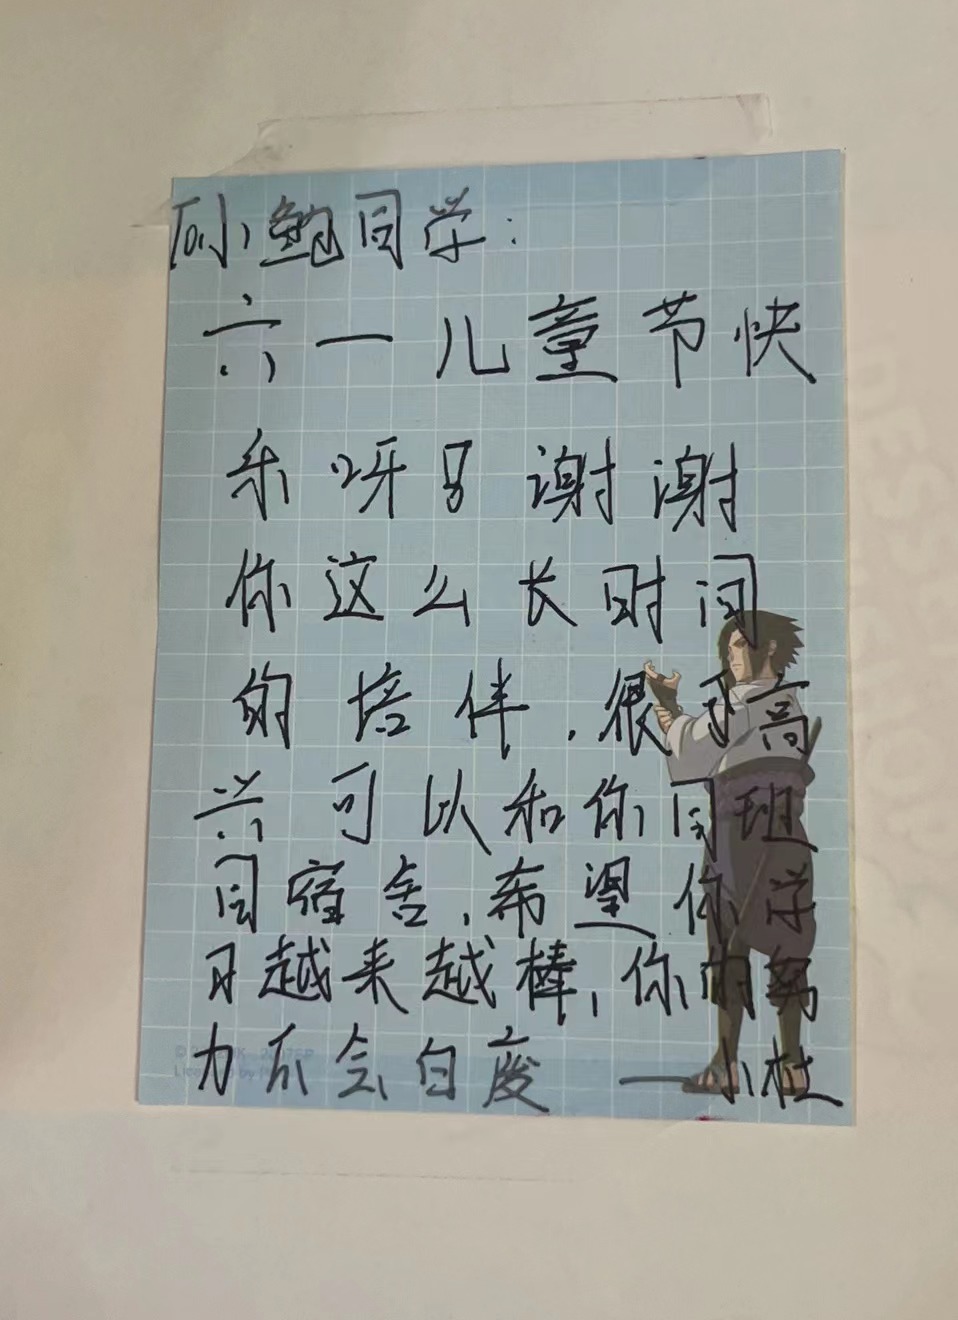 孙鲍同学：
六一儿童节快
乐呀！谢谢
你这么长时间
的培伴，很高
兴可以和你同班
同宿舍，希望你学
习越来越棒，你的努
力不会白废 ——小杜